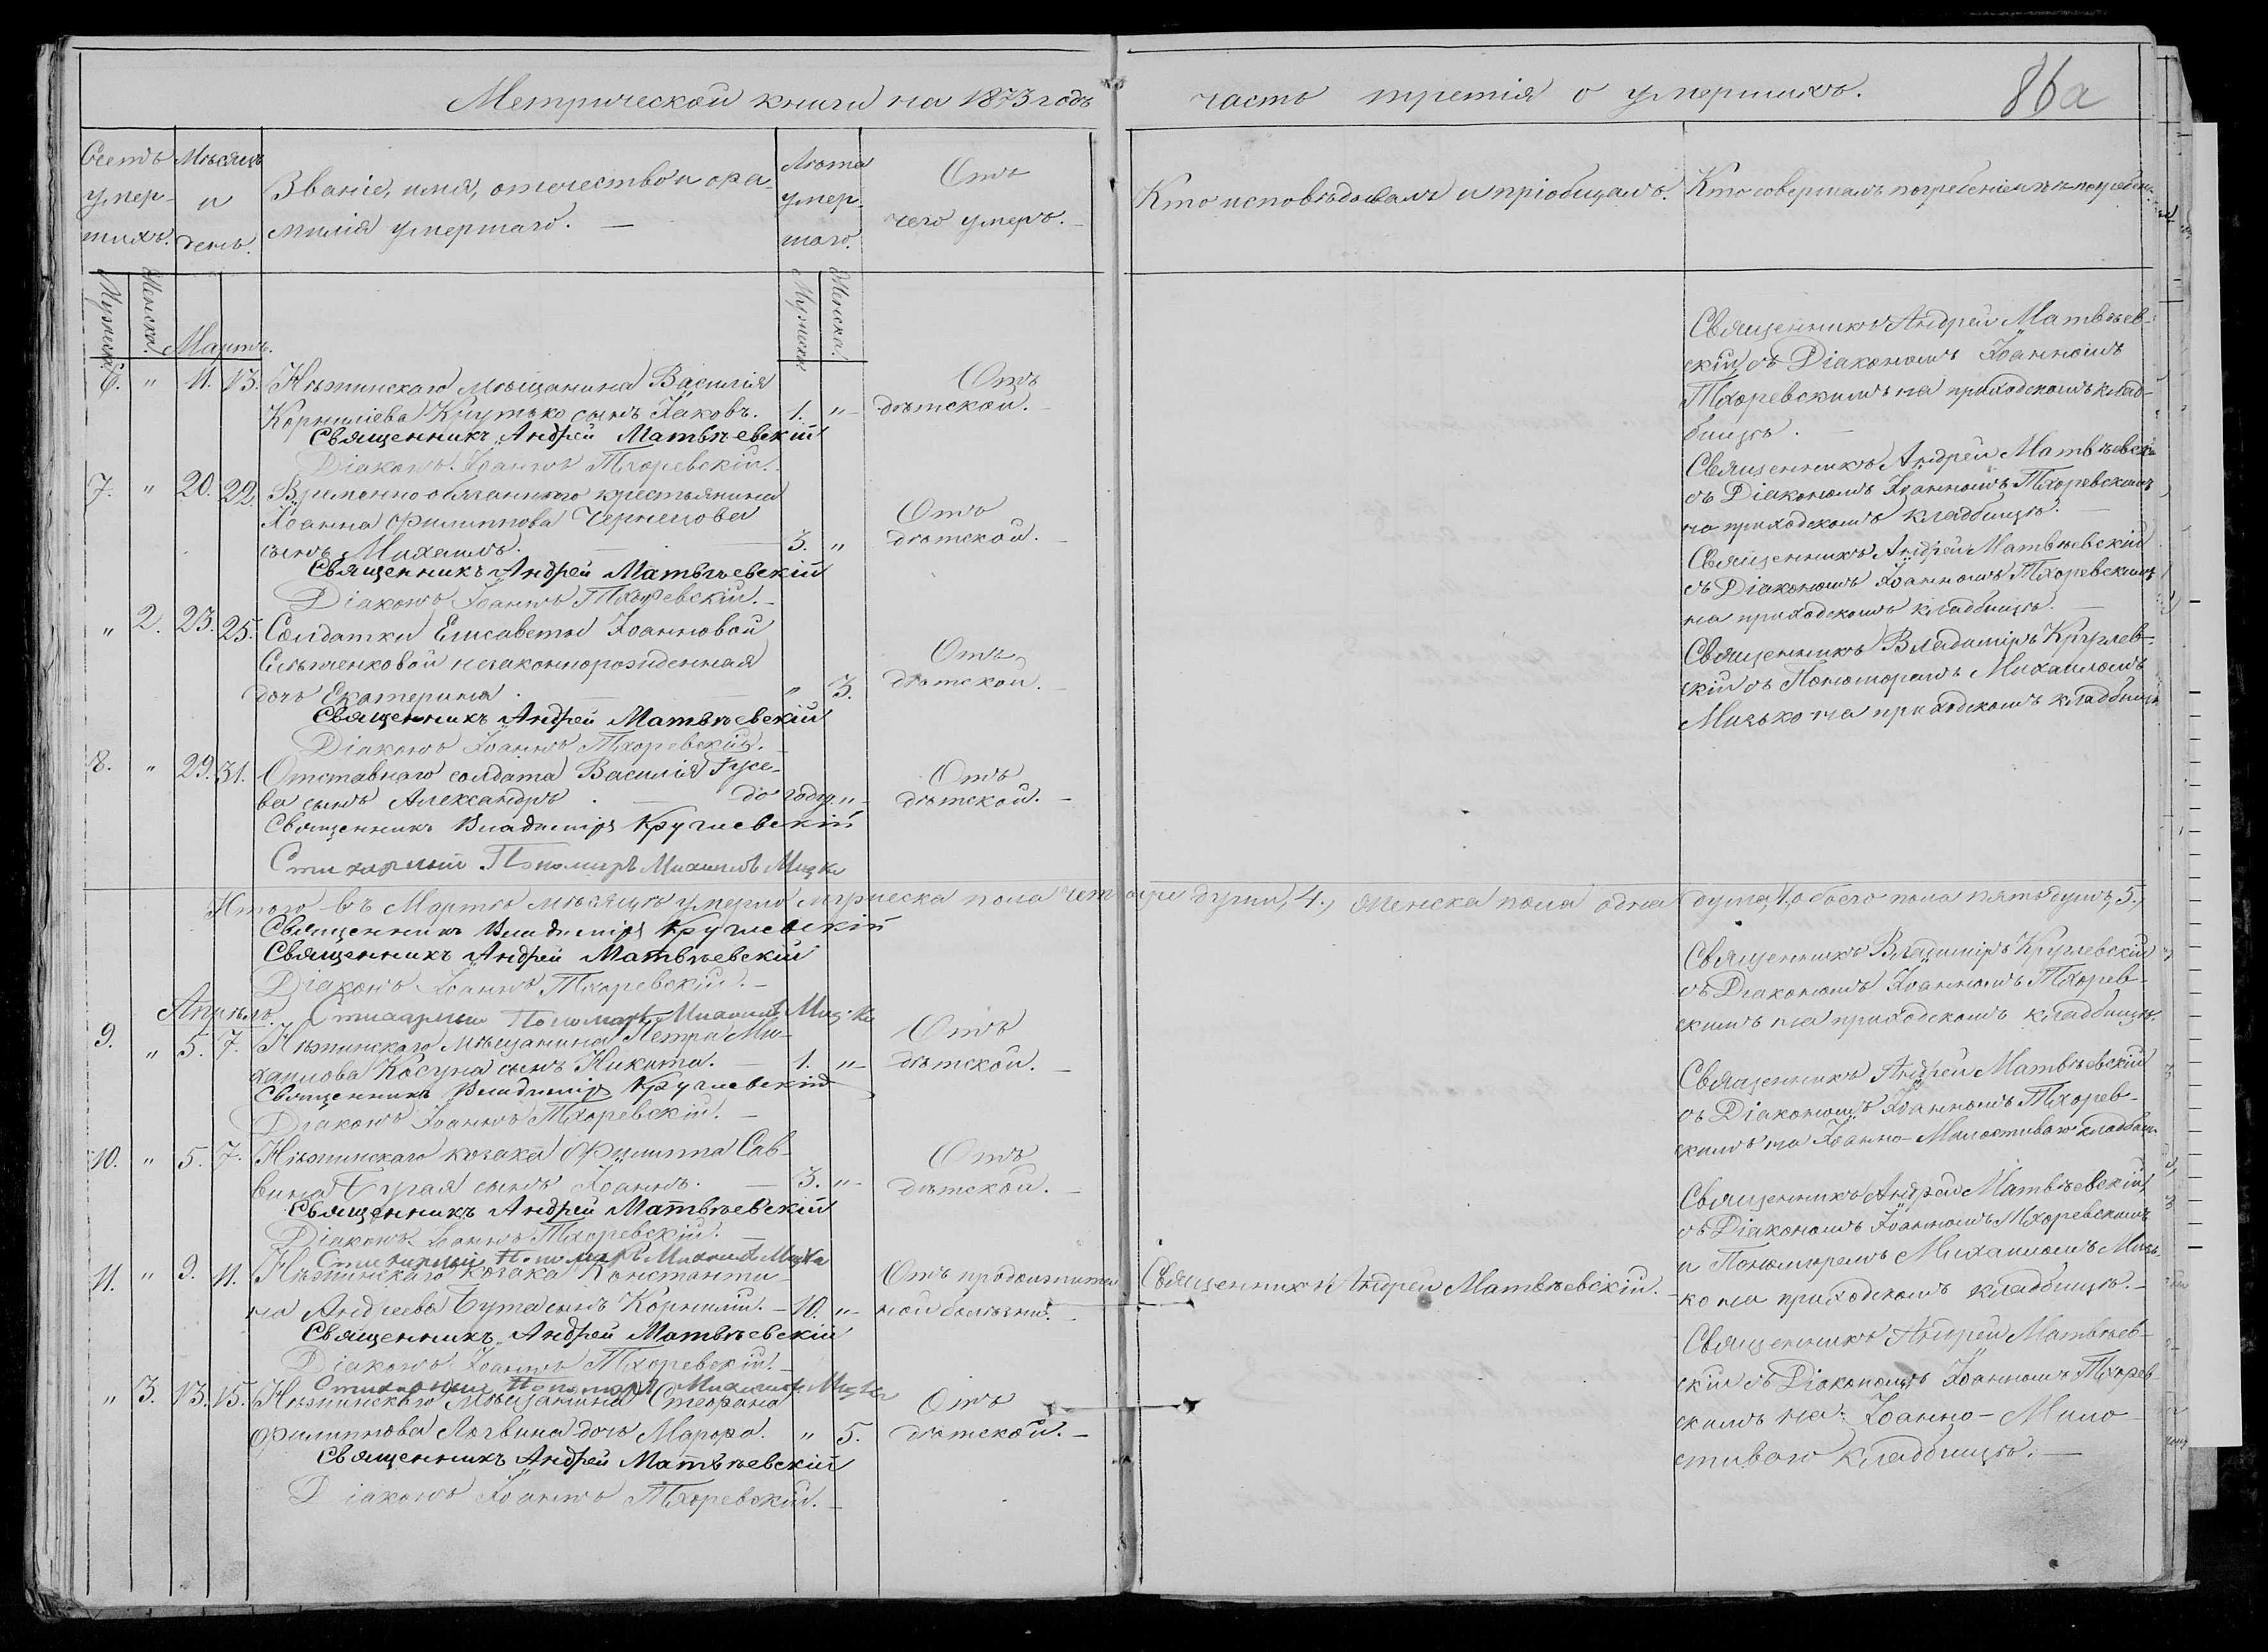 Метрической книги на 1873 годъ
часть третія о умершихъ.
86а
Счетъ умер-
шихъ.
Мѣсяцъ
и
день.
Званіе, имя, отчество и фа-
милія умершаго. —
Лѣта
умер-
шаго.
Отъ
чего умеръ. —
Кто исповѣдывалъ и пріобщалъ.
Кто совершалъ погребеніе и гдѣ погребены.
Мужеска.
Женска.
Мартъ.
Мужеска.
Женска.
6. " 11. 13. Нѣжинскаго мѣщанина Василія
Корниліева Крутько сынъ Іаковъ. 1. "
Отъ
дѣтской. —
Священникъ Андрей Матвѣевскій
Діаконъ Іоаннъ Тхоревскій.
Священникъ Андрей Матвѣев-
скій съ Діакономъ Іоанномъ
Тхоревскимъ на приходскомъ клад-
бищѣ. —
7. " 20. 22. Временно обязаннаго крестьянина
Іоанна Филиппова Чернецова
сынъ Михаилъ. — 3. "
Отъ
дѣтской. —
Священникъ Андрей Матвѣевскій
Діаконъ Іоаннъ Тхоревскій. —
Священникъ Андрей Матвѣевскій
съ Діакономъ Іоанномъ Тхоревскимъ
на приходскомъ кладбищѣ. —
" 2. 23. 25. Солдатки Елисаветы Іоанновой
незаконнорожденная
дочь Екатерина. — " 3.
Отъ
дѣтской. —
Священникъ Андрей Матвѣевскій
Діаконъ Іоаннъ Тхоревскій. —
Священникъ Андрей Матвѣевскій
съ Діакономъ Іоанномъ Тхоревскимъ
на приходскомъ кладбищѣ. —
8. " 29. 31. Отставнаго солдата Василія Гусе-
ва сынъ Александръ. — до году "
Отъ
дѣтской. —
Священникъ Владиміръ Кручевскій
Стихарный Пономарь Михаилъ Мизко
Священникъ Владиміръ Кручев-
скій съ Пономоремъ Михаиломъ
Мизько на приходскомъ кладбищѣ
Итого въ Мартѣ мѣсяцѣ умерло мужеска пола четыре души, 4., женска пола одна душа, 1., обоего пола пять душъ, 5.,
Священникъ Владиміръ Кручевскій
Священникъ Андрей Матвѣевскій
Діаконъ Іоаннъ Тхоревскій. —
Стихарный Пономарь Михаилъ Мизко
Апрѣль.
9. " 5. 7. Нѣжинскаго мѣщанина Петра Ми-
хаилова Косуна сынъ Никита. — 1. "
Отъ
дѣтской. —
Священникъ Владиміръ Кручевскій
Діаконъ Іоаннъ Тхоревскій. —
Священникъ Владиміръ Кручевскій
съ Діакономъ Іоанномъ Тхорев-
скимъ на приходскомъ кладбищѣ.
10. " 5. 7. Нѣжинскаго козака Филиппа Сав-
вина сынъ Іоаннъ. — 3. "
Отъ
дѣтской. —
Священникъ Андрей Матвѣевскій
Діаконъ Іоаннъ Тхоревскій. —
Стихарный Пономарь Михаилъ Мизко
Священникъ Андрей Матвѣевскій
съ Діакономъ Іоанномъ Тхорев-
скимъ на Іоанно-Милостиваго кладбищ.
11. " 9. 11. Нѣжинскаго козака Константи-
на Андреева Бута сынъ Корнилій. — 10. "
Отъ продолжитель
ной болѣзни.
Священникъ Андрей Матвѣевскій. —
Священникъ Андрей Матвѣевскій
Діаконъ Іоаннъ Тхоревскій. —
Стихарный Пономарь Михаилъ Мизко
Священникъ Андрей Матвѣевскій
съ Діакономъ Іоанномъ Тхоревскимъ
и Пономоремъ Михаиломъ Мизь-
ко на приходскомъ кладбищѣ. —
" 3. 13. 15. Нѣжинскаго мѣщанина Стефана
Филиппова Логвина дочь Марфа. " 5.
Отъ
дѣтской. —
Священникъ Андрей Матвѣевскій
Діаконъ Іоаннъ Тхоревскій. —
Священникъ Андрей Матвѣев-
скій съ Діакономъ Іоанномъ Тхорев-
скимъ на Іоанно-Мило-
стиваго кладбищѣ. —